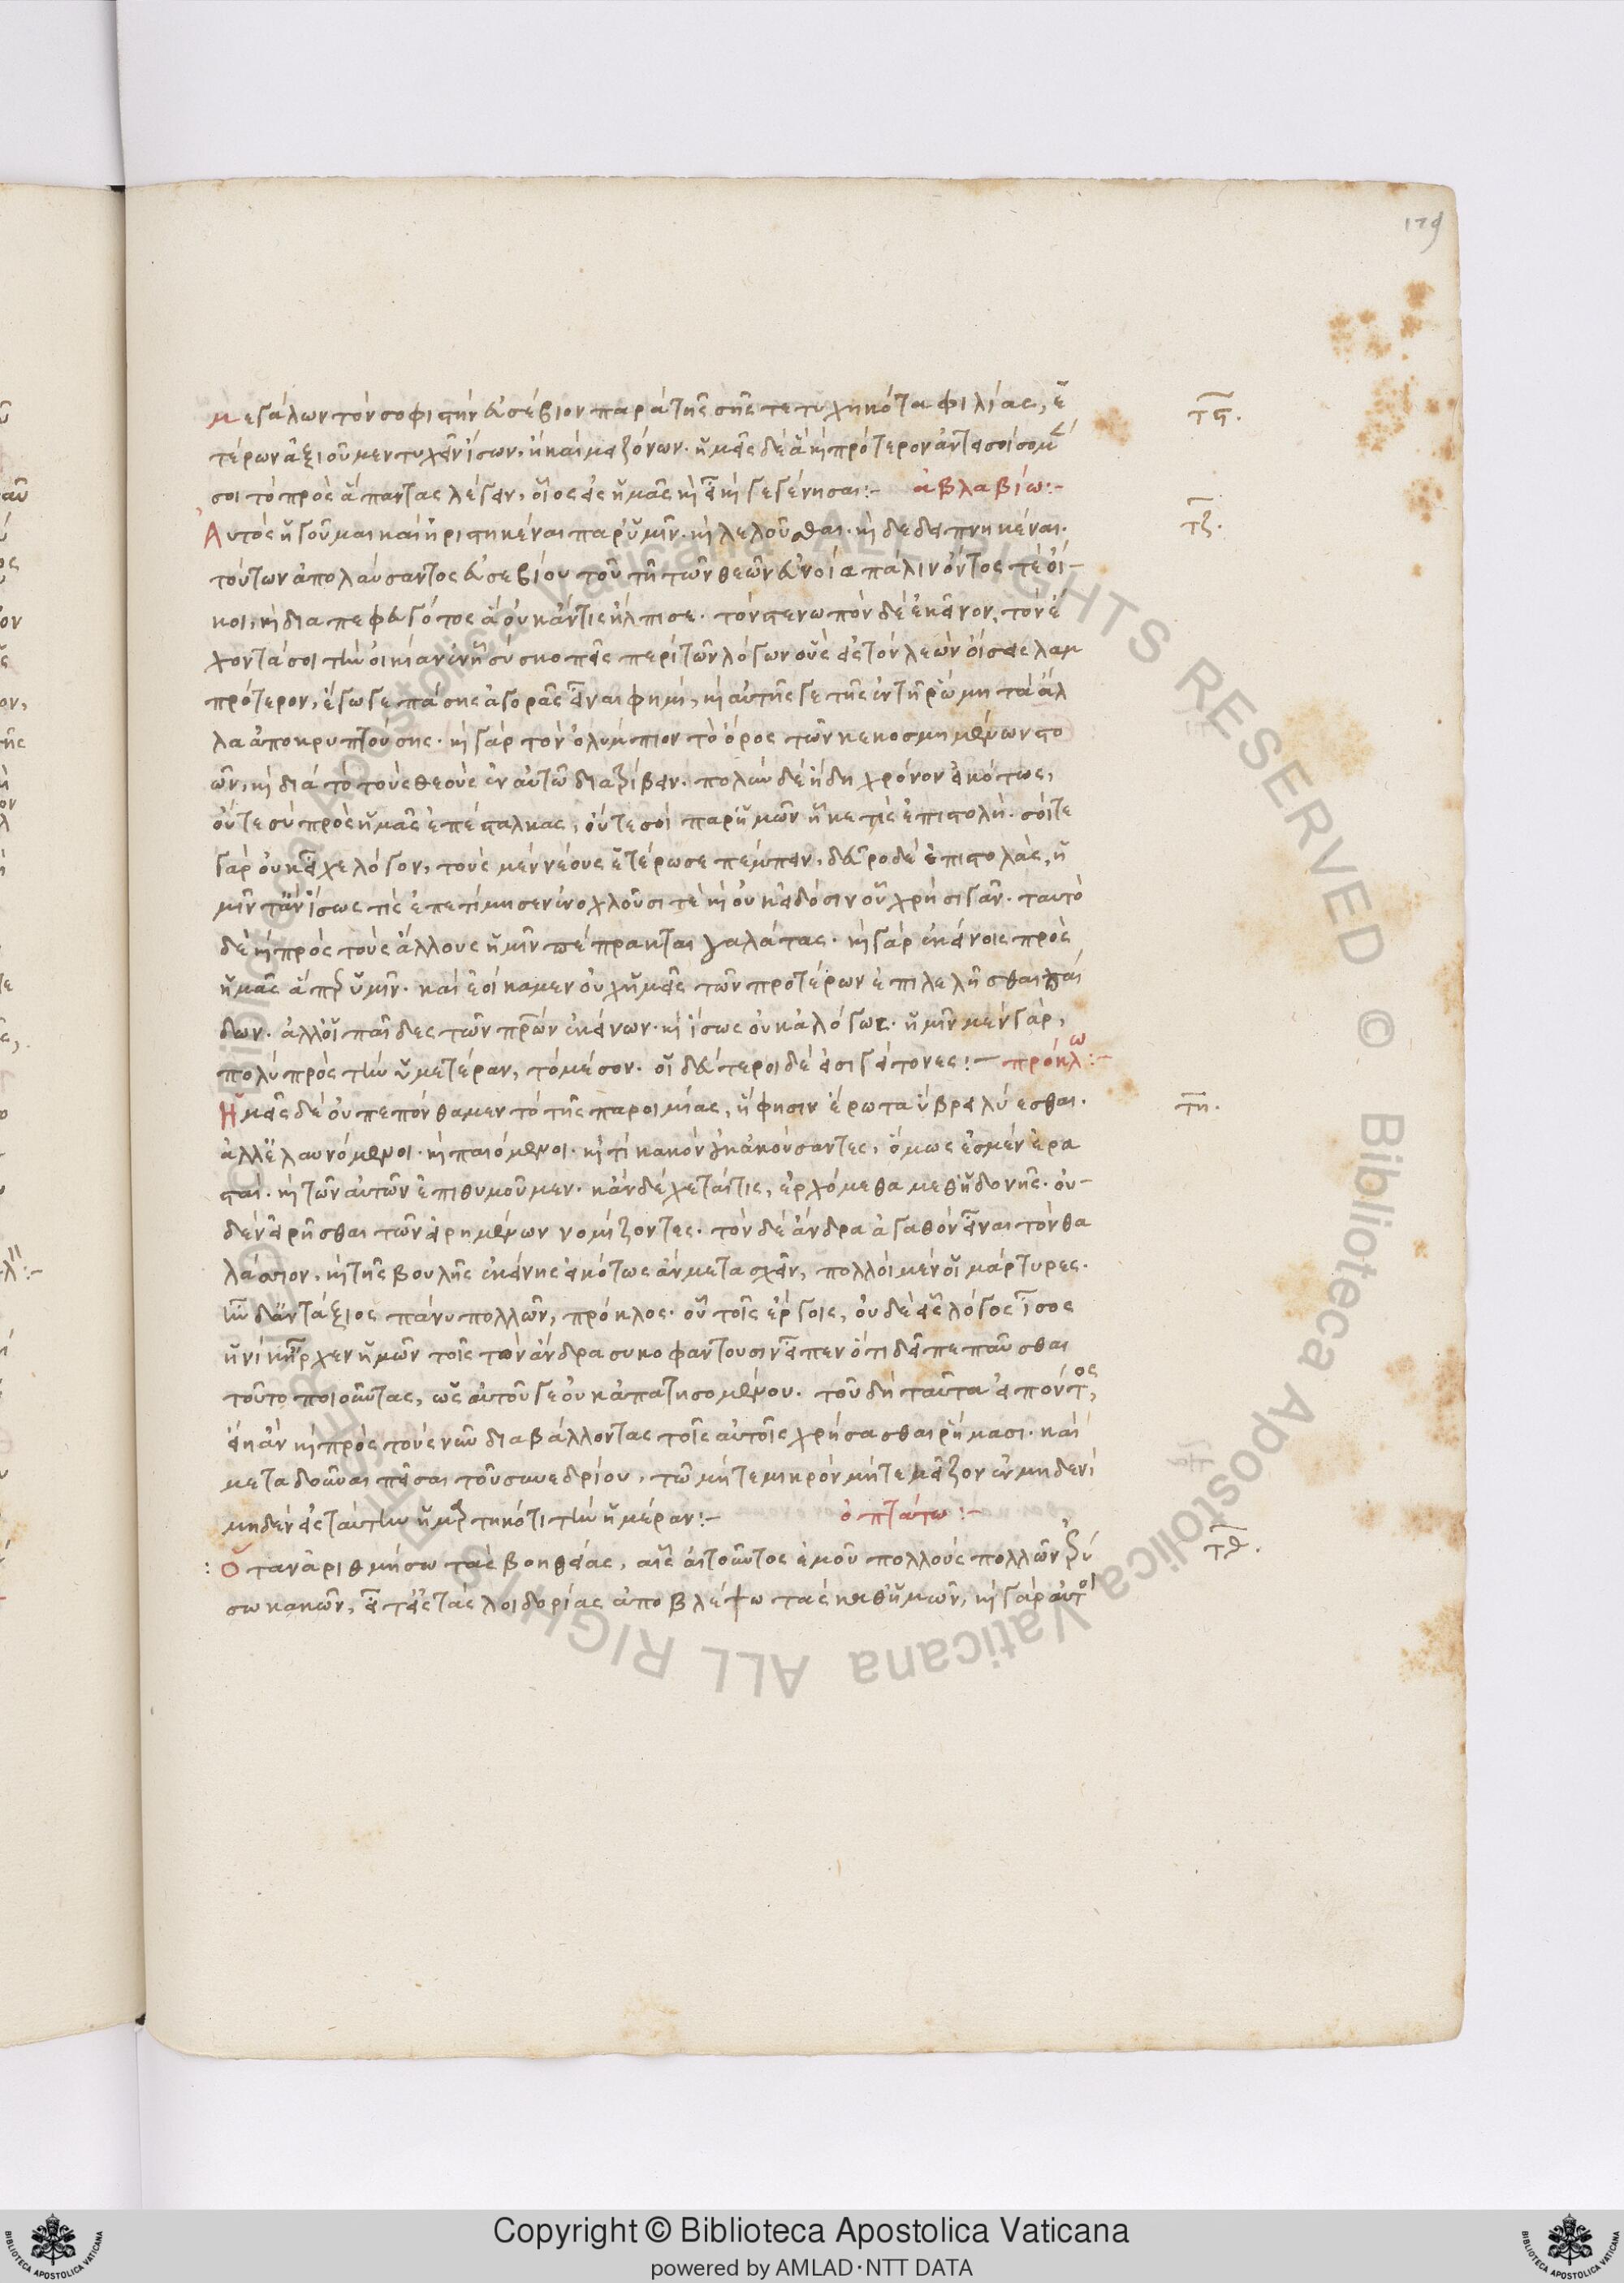 179
μεγάλων τὸν σοφιστὴν εὐσέβιον παρὰ τῆς σῆς τετυχηκότα φιλίας, ἑ
τέρων ἀξιοῦμεν τυχεῖν ἴσων, ἢ καὶ μειζόνων. ἡμεῖς δὲ ἃ κὴ πρότερον ἀντεισοίσομέν
σοι τὸ πρὸς ἅπαντας λέγειν, οἷος εἰς ἡμᾶς κὴ εἶ κὴ γεγένησαι:- ἀβλαβίω:-
τϛ.
Αὐτὸς ἡγοῦμαι καὶ ἠριστηκέναι παρ' ὑμῖν. κὴ λελοῦσθαι. κὴ δεδειπνηκέναι.
τζ.
τούτων ἀπολαύσαντος εὐσεβίου τοῦ τῇ τῶν θεῶν εὐνοίᾳ πάλιν ὄντος τὲ οἴ-
κοι, κὴ διαπεφευγότος ἃ οὐκ ἄν τις ἤλπισε. τὸν στενωπὸν δὲ ἐκεῖνον, τὸν ἔ
χοντά σοι τὴν οἰκίαν ἐν ᾗ σὺ σκοπεῖς περὶ τῶν λόγων οὓς εἰς τὸν λεὼν οἴσεις λαμ
πρότερον, ἔγωγε πάσης ἀγορᾶς εἶναι φημὶ, κὴ αὐτῆς γε τῆς ἐν τῇ ῥώμη τὰ ἄλ
λα ἀποκρυπτούσης. κὴ γὰρ τὸν ὀλύμπιον τὸ ὄρος τῶν κεκοσμημένων στο
ῶν, κὴ διὰ τὸ τοὺς θεοὺς ἐν αὐτῶ διατρίβειν. πολὺν δὲ ἤδη χρόνον εἰκότως,
οὔτε σὺ πρὸς ἡμᾶς ἐπέσταλκας, οὔτε σοὶ παρ' ἡμῶν ἧκε τὶς ἐπιστολή. σοί τε
γὰρ οὐκ εἶχε λόγον, τοὺς μὲν νέους ἑτέρωσε πέμπειν, δεῦρο δὲ ἐπιστολὰς, ἡ
μῖν τ' ἂν ἴσως τὶς ἐπετίμησεν ἐνοχλοῦσι τὲ κὴ οὐκ εἰδόσιν οὗ χρὴ σιγᾶν. ταυτὸ
δὲ κὴ πρὸς τοὺς ἄλλους ἡμῖν πέπρακται γαλάτας. κὴ γὰρ ἐκείνοις πρὸς
ἡμᾶς ἅπερ ὑμῖν. καὶ ἐοίκαμεν οὐχ ἡμεῖς τῶν προτέρων ἐπιλελῆσθαι παί
δων. ἀλλ' οἱ παῖδες τῶν πατέρων ἐκείνων. κὴ ἴσως οὐκ ἀλόγως. ἡμῖν μὲν γὰρ,
πολὺ πρὸς τὴν ὑμετέραν, τὸ μέσον. οἱ δεύτεροι δὲ εἰσὶ γείτονες:- πρόκλω:-
Ἡμεῖς δὲ οὐ πεπόνθαμεν τὸ τῆς παροιμίας, ἥ φησιν ἔρωτα ὕβρει λύεσθαι.
τη.
ἀλλ' ἐλαυνόμενοι. κὴ παιόμενοι. κὴ τί κακὸν οὐκ ἀκούσαντες, ὅμως ἐσμὲν ἐρα
σταί. κὴ τῶν αὐτῶν ἐπιθυμοῦμεν. κἂν δέχεταί τις, ἐρχόμεθα μεθ' ἡδονῆς. οὐ-
δὲν εἰρῆσθαι τῶν εἰρημένων νομίζοντες. τὸν δὲ ἄνδρα ἀγαθὸν εἶναι τὸν θα
λάσσιον, κὴ τῆς βουλῆς ἐκείνης εἰκότως ἂν μετασχεῖν, πολλοὶ μὲν οἱ μάρτυρες.
ἦν δ' ἀντάξιος πάνυ πολλῶν, πρόκλος. οὗ τοῖς ἔργοις, οὐδὲ εἷς λόγος ἴσος
ἡνίκ' ἦρχεν ἡμῶν τοῖς τὸν ἄνδρα συκοφαντοῦσιν εἶπεν ὅτι δεῖ πεπαῦσθαι
τοῦτο ποιοῦντας, ὡς αὐτοῦ γε οὐκ ἀπατησομένου. τοῦ δὴ ταῦτα εἰπόντος,
εἴη ἂν κὴ πρὸς τοὺς νῦν διαβάλλοντας τοῖς αὐτοῖς χρήσασθαι ῥήμασι. καὶ
μεταδοῦναι πεῖσαι τοῦ συνεδρίου, τῶ μήτε μικρὸν μήτε μεῖζον ἐν μηδενὶ
μηδὲν εἰς ταύτην ἡμαρτηκότι τὴν ἡμέραν:- ὀπτάτω:-
Ὅταν ἀριθμήσω τὰς βοηθείας, αἷς αἰτοῦντος ἐμοῦ πολλοὺς πολλῶν ἐρρύ
τθ.
σω κακῶν, εἶτ' εἰς τὰς λοιδορίας ἀποβλέψω τὰς καθ' ἡμῶν, κὴ γὰρ αὐτοὶ
Copyright © Biblioteca Apostolica Vaticana
powered by AMLAD·NTT DATA